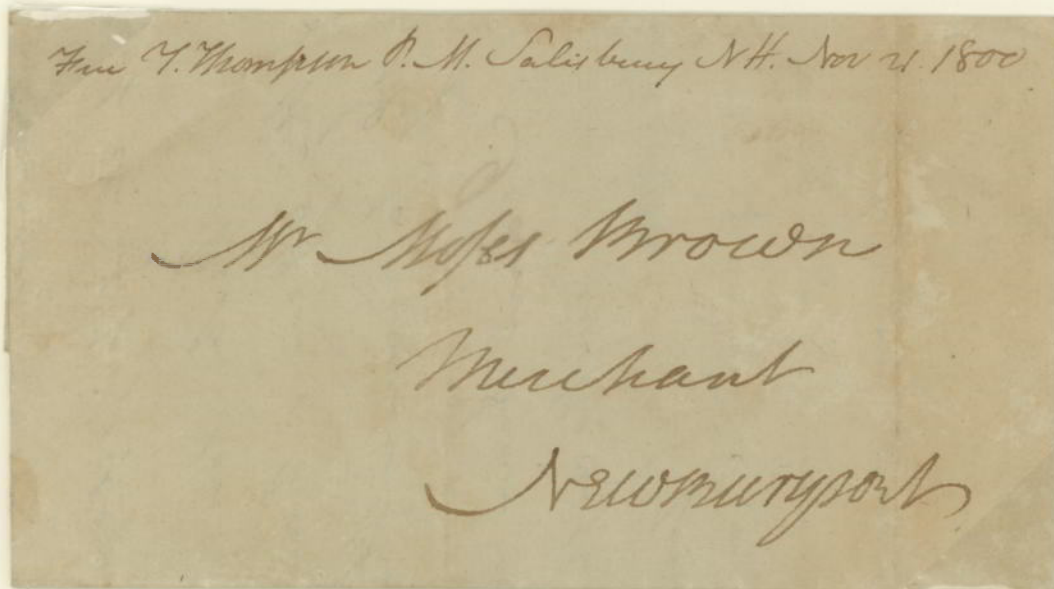 Free T. Thompson P. M. Salisbury NH. Nov 21. 1800
Mr Moses Brown
Merchant
Newburyport